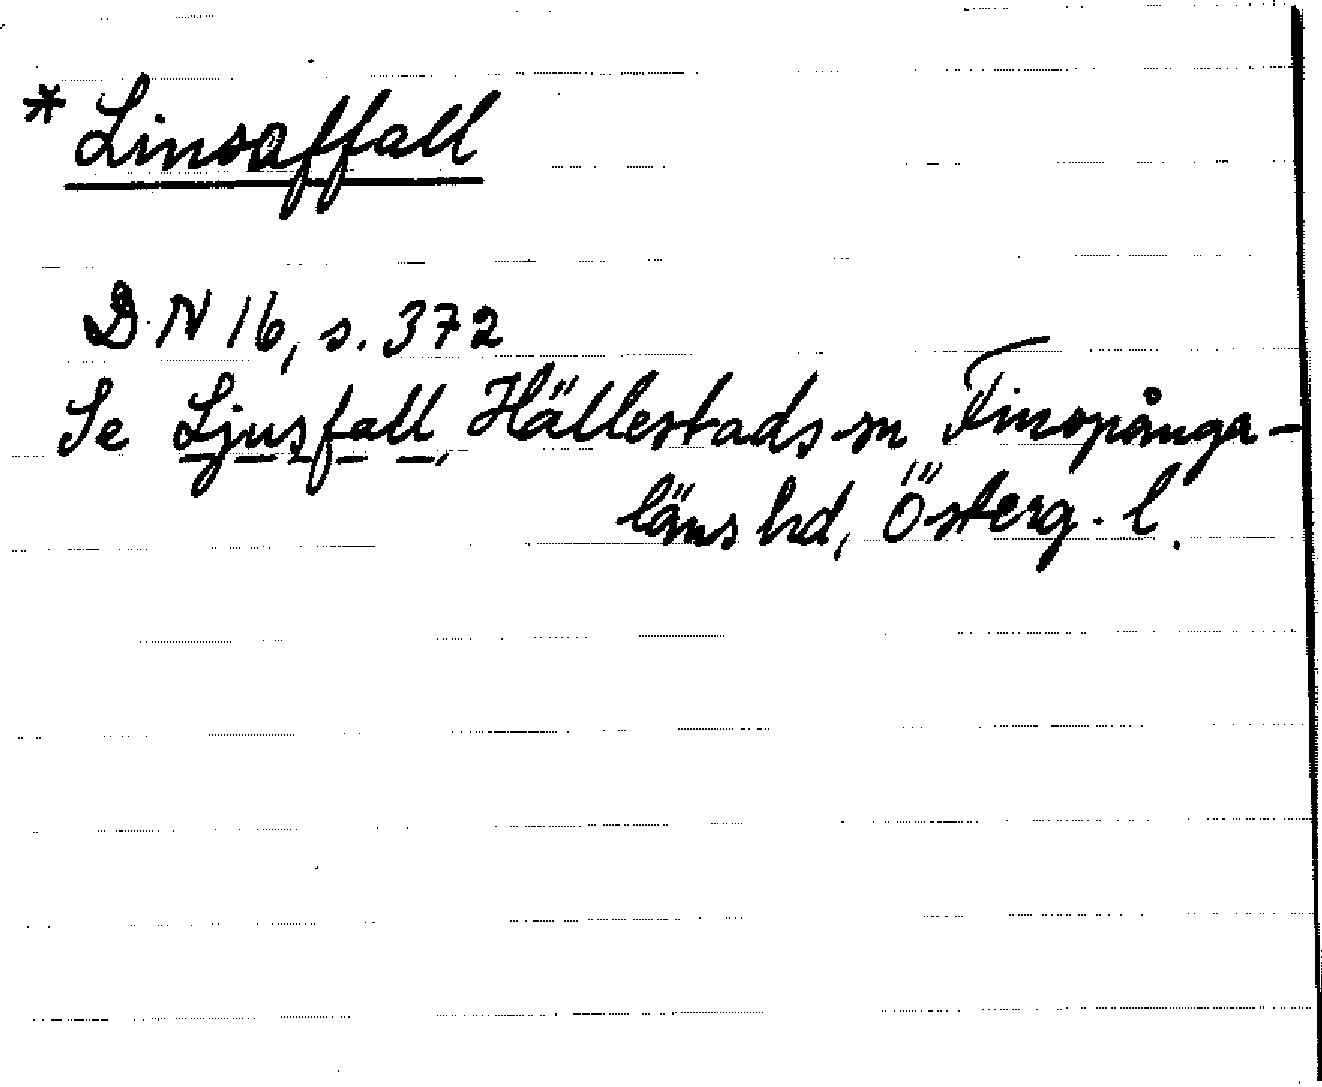 * Linsaffall
DN 16, s. 372
Se Ljusfall, Hällestads sn Finspånga-
läns hd, Österg. l.